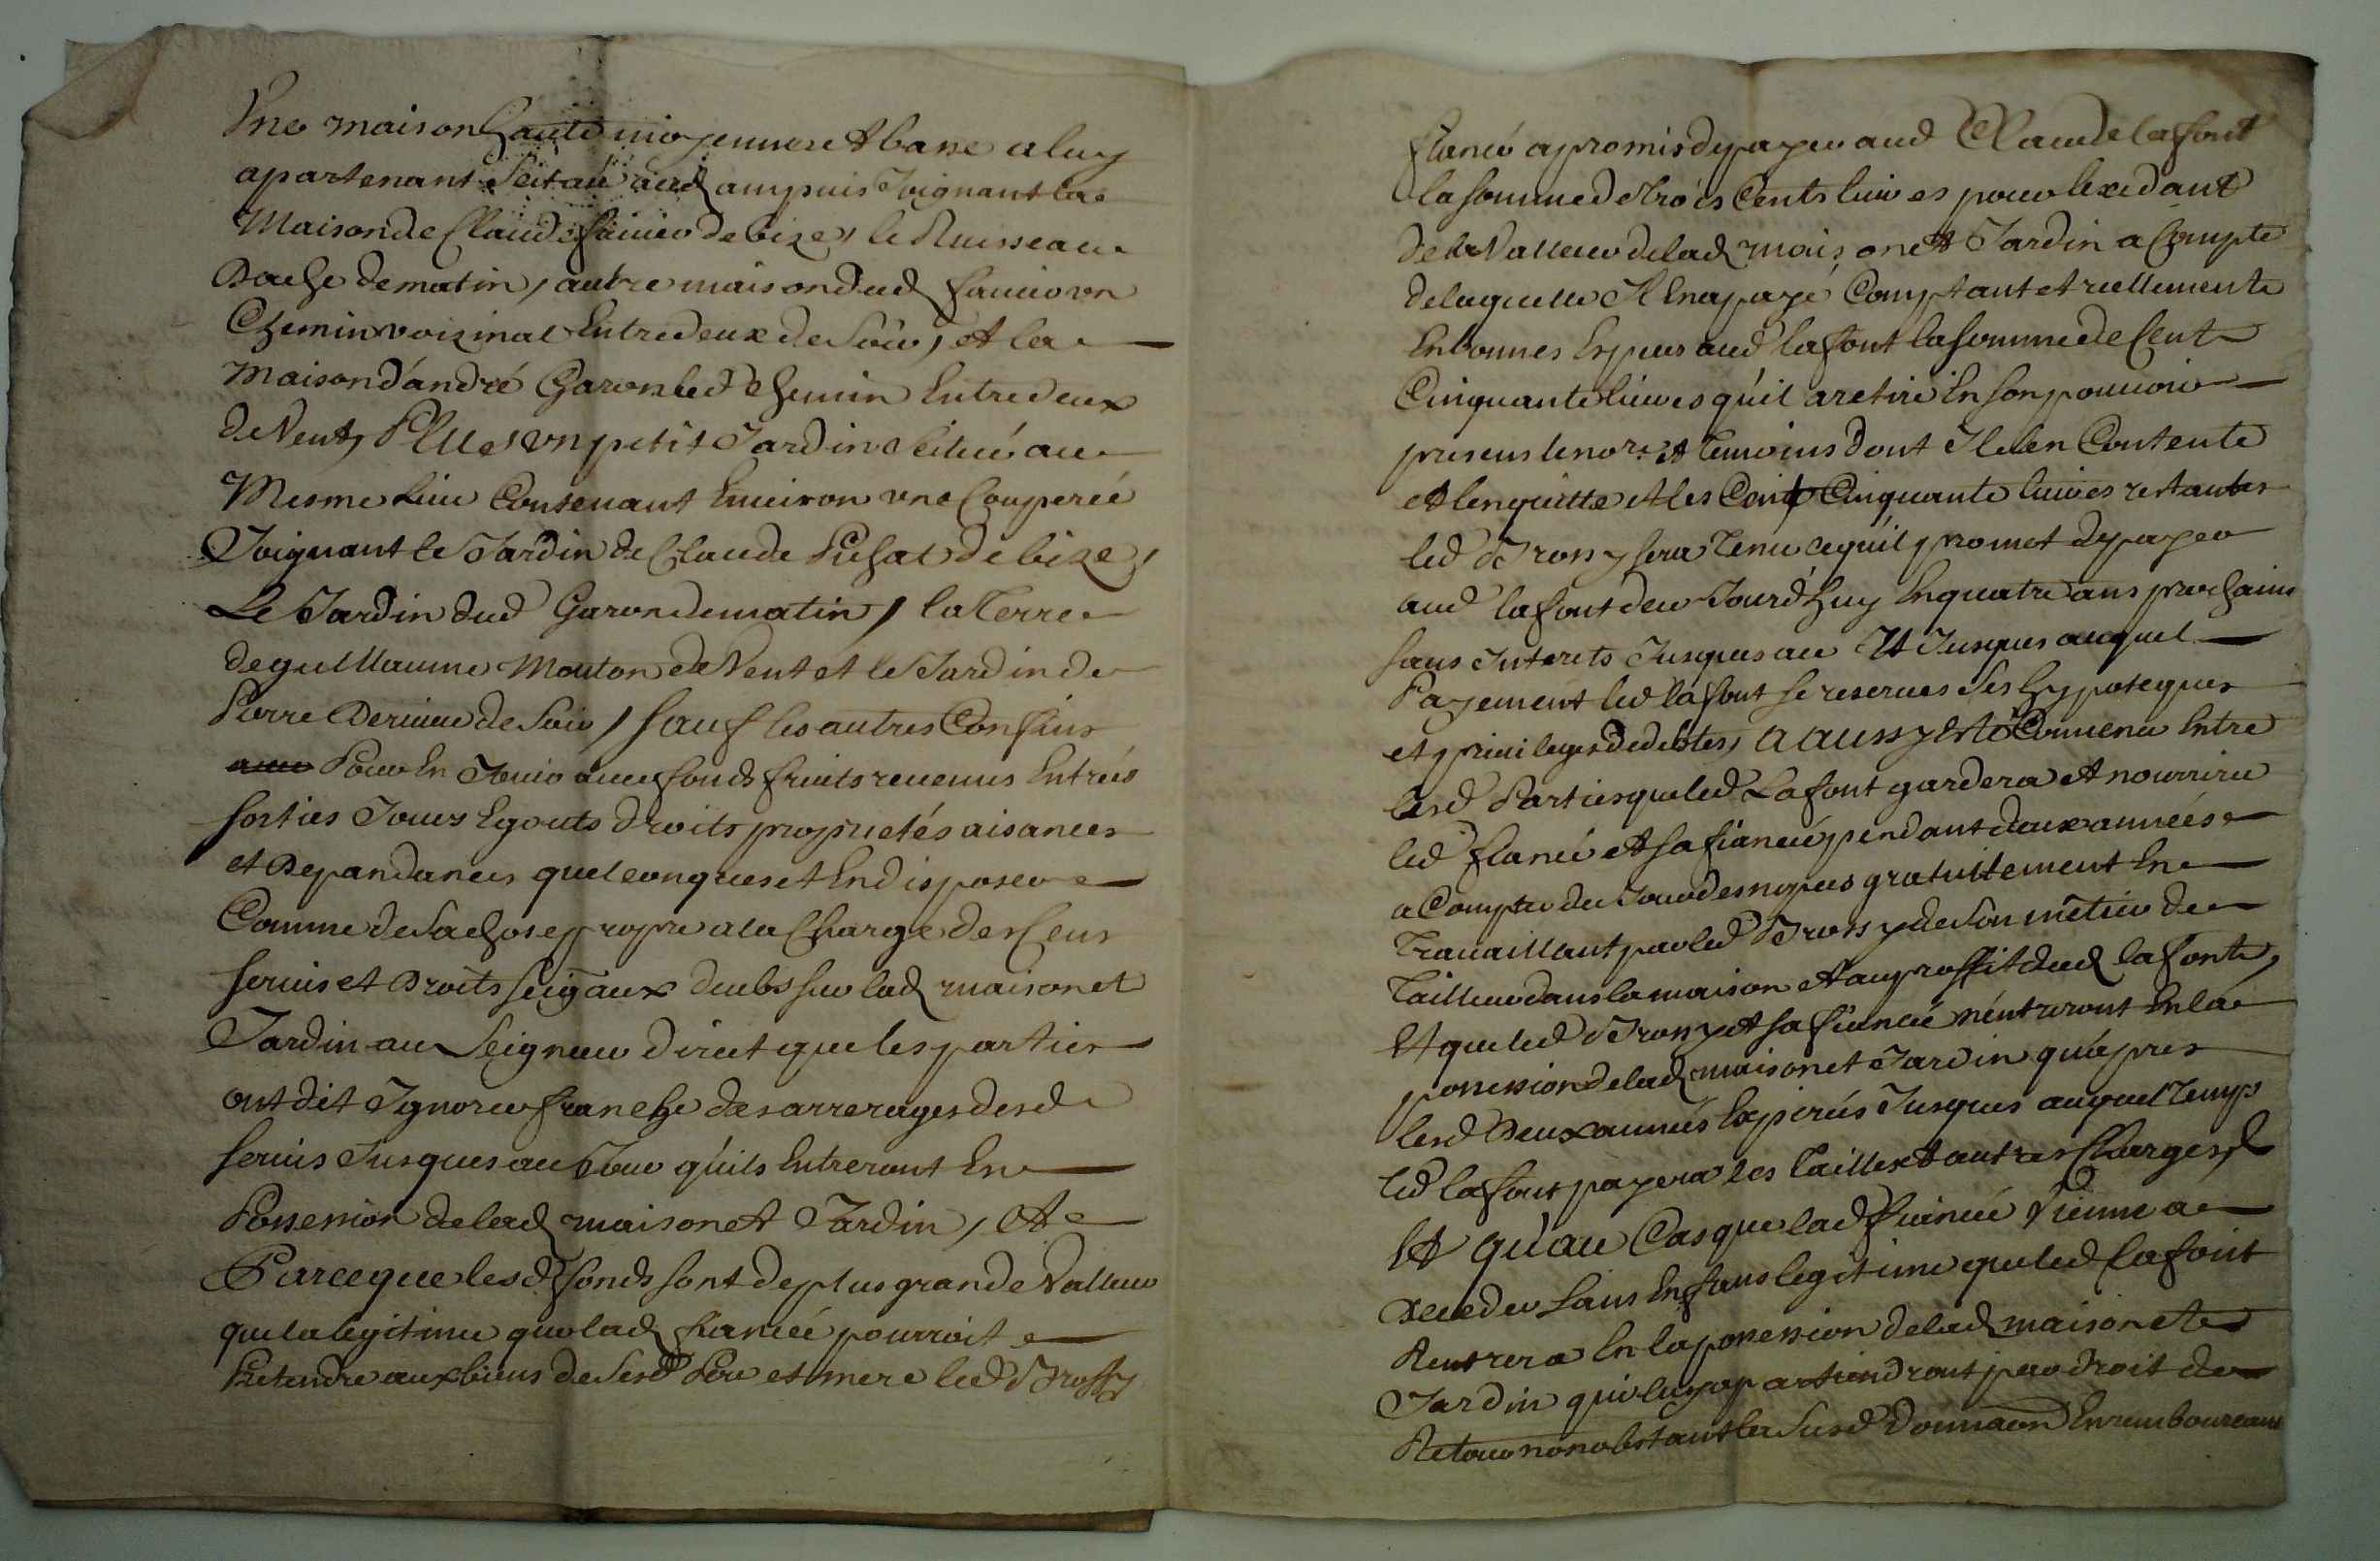 Une maison haute mojenne et basse a luy
apartenant scitué aud ampuis Joignant la
Maison de Claude faniev de bize, le Ruisseau
Bache de matin, autre maison dud faniev vn
Chemin voizinal Entre deux de Soir, et la
Maison d'andré Garon led Chemin Entre deux
de Vent, Plus vn petit Jardin Scitué au
Mesme Lieu Contenant Enuiron vne Couperée
Joignant le Jardin de Claude Pichat de bize,
Le Jardin dud Garon de matin, la Terre
de guillaume Mouton de Vent et le Jardin de
Pierre Derieuu de Soir, sauf les autres Confins
Pour En Jouir auec fonds fruits reuenus Entrées
sorties Jours Egouts droits proprietés aisances
et Depandances quelconques et En disposer
Comme de Sa chose propre a la Charge des Cens
seruis et Droits seig̃aux deubs sur lad maison et
Jardin au Seigneur direct que les parties
ont dit Ignorer franche des arrerages desd
seruis Jusques au Jour qu'ils Entreront En
Possession de lad maison et Jardin, Et
Parceque lesd fonds sont de plus grande Valleur
que la legitime que lad fiancée pourroit
Pretendre aux biens de Sesd Pere et mere led Brossy
fiancé a promis de payer aud Claude lafont
la somme de trois Cents liures pour l'exedant
de la Valleur de lad maison et Jardin a Compte
de laquelle Il En a payé Comptant et reellement
En bonnes Espces aud lafont la somme de Cent
Cinquante liures qu'il a retiré En son pouuoir
presens le no.re et temoins dont Il s'en Contente
et l'en quitte et les Cent Cinquante liures restantes
led Brossy sera Tenu ce qu'il promet de payer
aud lafont de ce Jourd'huy En quatre ans prochains
sans Interets Jusques au Et Jusques auquel
Payement led lafont se reserues Ses hypoteques
et priuileges de debtes, a aussy Esté Conuenu Entre
lesd Parties que led Lafont gardera et nourrira
led fiancé et sa fiancée pendant deux années
a Compter du Jour des nopces gratuittement En
Trauaillant par led Brossy de Son métier de
Tailleur dans la maison et au proffit dud lafont,
Et que led Brossy et sa fiancée n'entreront En la
possession de lad maison et Jardin qu'apres
lesd Deux années Expirées Jusques auquel Temps
led lafont payera les Tailles et autres Charges
Et qu'au Cas que lad fiancée Vienne a
Deceder Sans Enfans legitime que led lafont
Rentrera En la possession de lad maison et
Jardin qui luy apartiendront par droit de
Retour nonobstant la Susd donnaon En remboursant